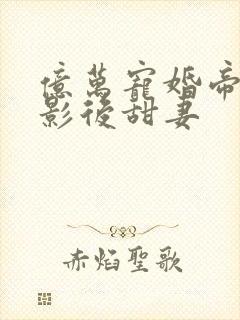 億萬寵婚帝
影後甜妻
赤焰聖歌